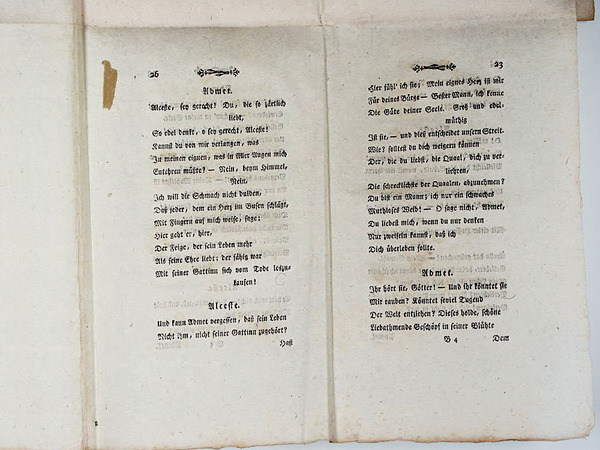 26
Admet.
Alceste, sey gerecht! Du, die so zärtlich
liebt,
So edel denkt, o sey gerecht, Alceste!
Kannst du von mir verlangen, was
In meinen eignen, was in Aller Augen mich
Entehren müßte? — Nein, beym Himmel,
— Nein,
Ich will die Schmach nicht dulden,
Daß jeder, dem ein Herz im Busen schlägt,
Mit Fingern auf mich weise, sage:
Hier geht er, hier,
Der Feige, der sein Leben mehr
Als seine Ehre liebt; der fähig war
Mit seiner Gattinn sich vom Tode loszu-
kaufen!
Alceste.
Und kann Admet vergessen, daß sein Leben
Nicht ihm, nicht seiner Gattinn zugehört?
Hast
23
Hier fühl' ich sie; Mein eignes Herz ist mir
Für deines Bürge — Bester Mann, ich kenne
Die Güte deiner Seele. Groß und edel-
müthig
Ist sie, — und dieß entscheidet unsern Streit.
Wie? solltest du dich weigern können
Der, die du liebst, die Quaal, dich zu ver-
liehren,
Die schrecklichste der Quaalen, abzunehmen?
Du bist ein Mann; ich nur ein schwaches
Muthloses Weib! — O sage nicht, Admet,
Du liebest mich, wenn du nur denken
Nur zweifeln kannst, daß ich
Dich überleben sollte.
Admet.
Ihr hört sie, Götter! — Und ihr könntet sie
Mir rauben? Könntet soviel Tugend
Der Welt entziehen? Dieses holde, schöne
Liebathmende Geschöpf in seiner Blühte
B 4 Dem